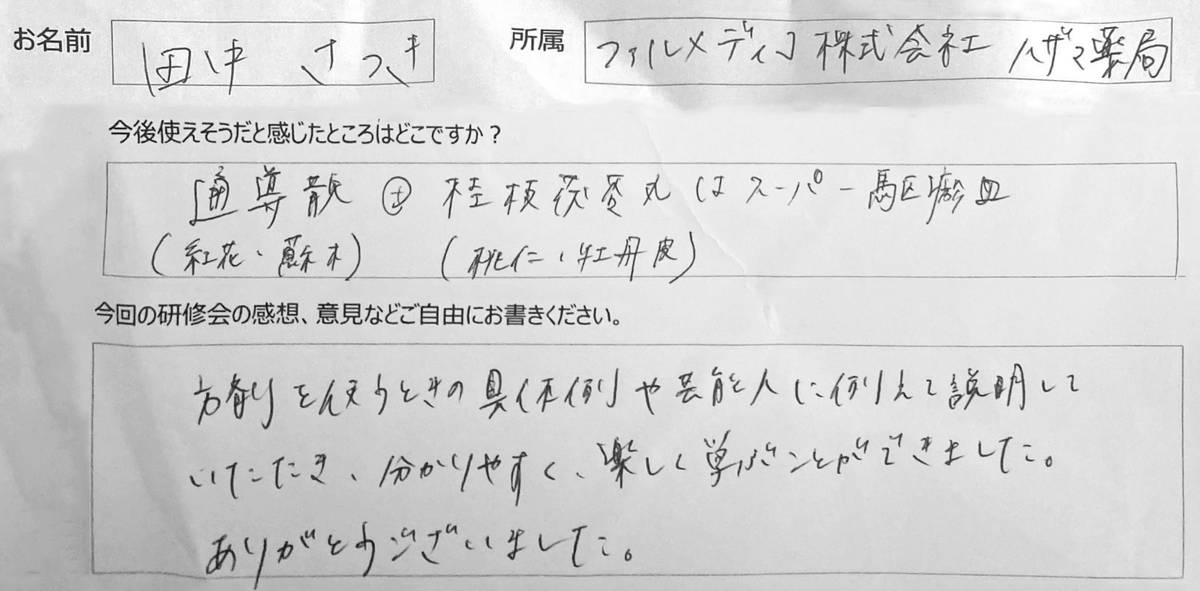 お名前 田中 さつき 所属 ファルメディコ株式会社 ハザマ薬局
今後使えそうだと感じたところはどこですか？
通導散 ㊏ 桂枝茯苓丸はスーパー駆瘀血
(紅花・蘇木) (桃仁・牡丹皮)
今回の研修会の感想、意見などご自由にお書きください。
方剤を使うときの具体例や芸能人に例えて説明して
いただき、分かりやすく、楽しく学ぶことができました。
ありがとうございました。